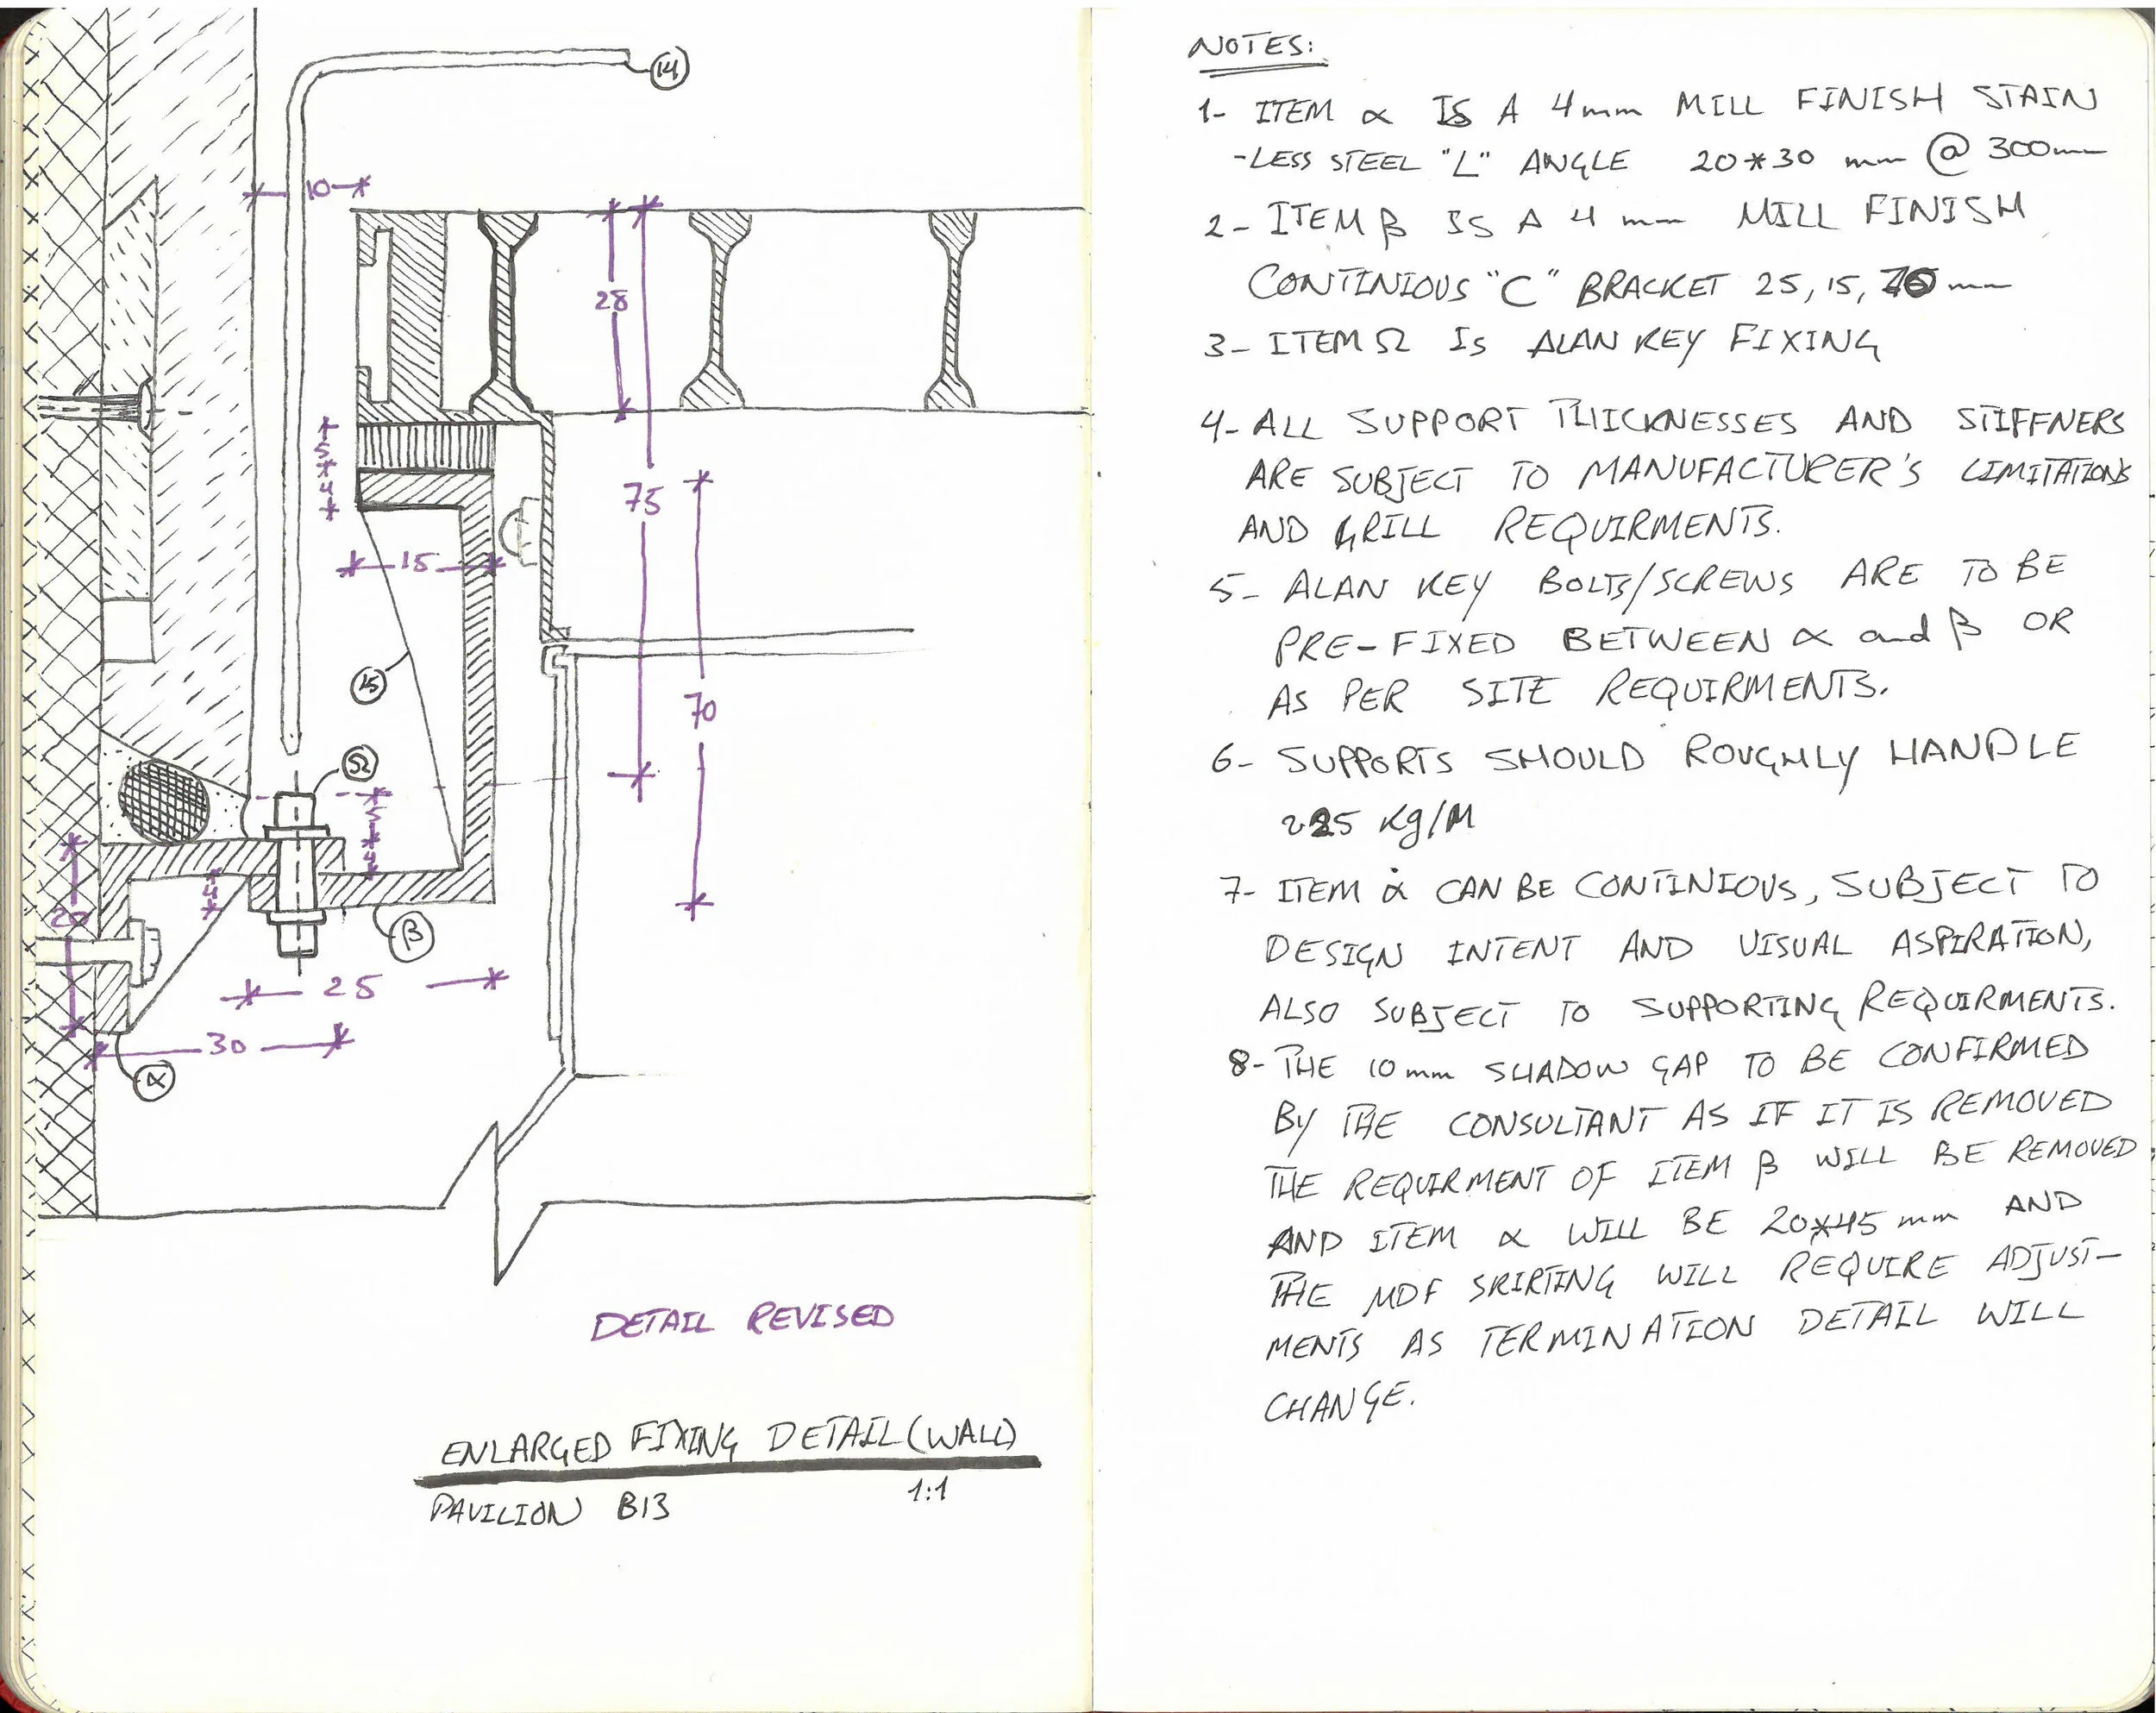 14
10
28
5
4
75
15
15
70
Ω
5
4
20
4
β
25
30
α
DETAIL REVISED
ENLARGED FIXING DETAIL (WALL)
PAVILION B13 1:1
NOTES:
1- ITEM α IS A 4mm MILL FINISH STAIN
-LESS STEEL "L" ANGLE 20*30 mm @ 300mm
2- ITEM β IS A 4 mm MILL FINISH
CONTINIOUS "C" BRACKET 25, 15, 70 mm
3- ITEM Ω IS ALAN KEY FIXING
4- ALL SUPPORT THICKNESSES AND STIFFNERS
ARE SUBJECT TO MANUFACTURER'S LIMITATIONS
AND GRILL REQUIRMENTS.
5- ALAN KEY BOLTS/SCREWS ARE TO BE
PRE-FIXED BETWEEN α and β OR
AS PER SITE REQUIRMENTS.
6- SUPPORTS SHOULD ROUGHLY HANDLE
Kg/M
7- ITEM α CAN BE CONTINIOUS, SUBJECT TO
DESIGN INTENT AND VISUAL ASPIRATION,
ALSO SUBJECT TO SUPPORTING REQUIRMENTS.
8- THE 10mm SHADOW GAP TO BE CONFIRMED
BY THE CONSULTANT AS IF IT IS REMOVED
THE REQUIRMENT OF ITEM β WILL BE REMOVED
AND ITEM α WILL BE 20*45 mm AND
THE MDF SRIRTING WILL REQUIRE ADJUST-
MENTS AS TERMINATION DETAIL WILL
CHANGE.